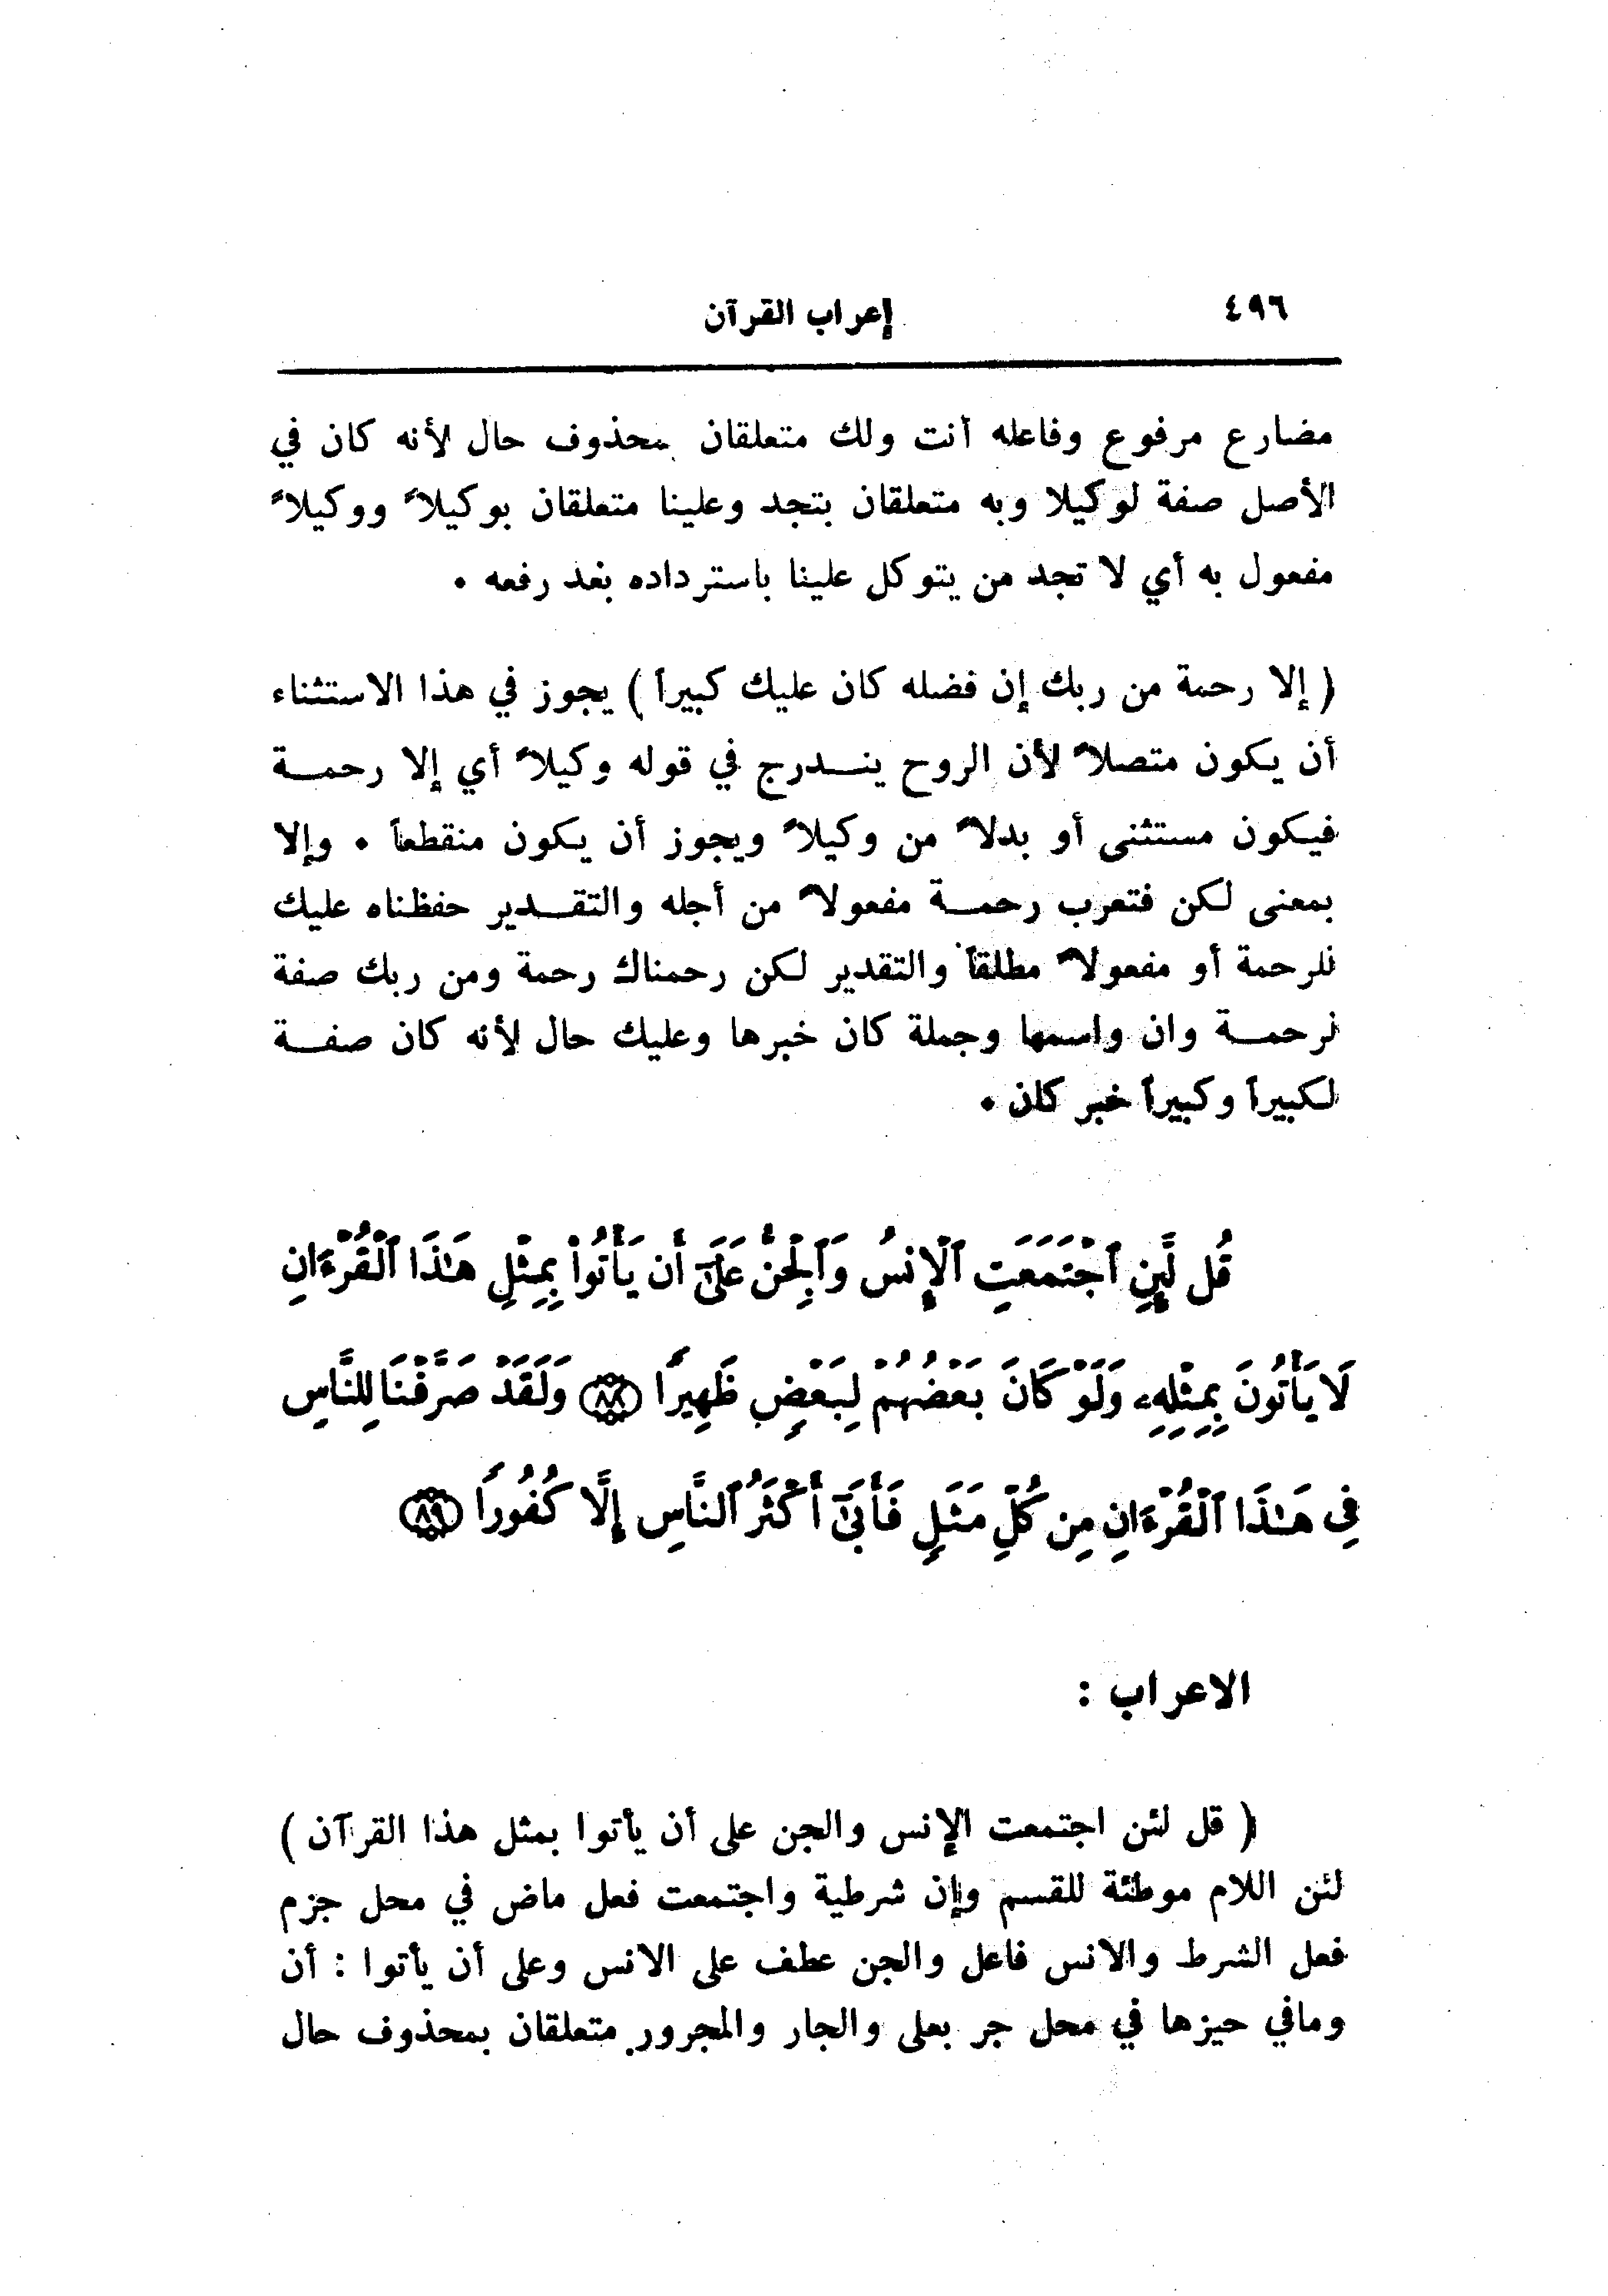 ٤٩٦
إعراب القرآن
مضارع مرفوع وفاعله أنت ولك متعلقان بمحذوف حال لأنه كان في
الأصل صفة لوكيلا وبه متعلقان بتجد وعلينا متعلقان بوكيلاً ووكيلاً
مفعول به أي لا تجد من يتوكل علينا باسترداده بعد رفعه ٠
( إلا رحمة من ربك إن فضله كان عليك كبيراً ) يجوز في هذا الاستثناء
أن يكون متصلاً لأن الروح ينـــدرج في قوله وكيلاً أي إلا رحمــة
فيكون مستثنى أو بدلاً من وكيلاً ويجوز أن يكون منقطعاً ٠ وإلا
بمعنى لكن فتعرب رحمــة مفعولاً من أجله والتقــدير حفظناه عليك
للرحمة أو مفعولاً مطلقاً والتقدير لكن رحمناك رحمة ومن ربك صفة
لرحمــة وان واسمها وجملة كان خبرها وعليك حال لأنه كان صفــة
لكبيراً وكبيراً خبر كان ٠
قُل لَّئِنِ ٱجْتَمَعَتِ ٱلْإِنسُ وَٱلْجِنُّ عَلَىٰٓ أَن يَأْتُوا۟ بِمِثْلِ هَـٰذَا ٱلْقُرْءَانِ
لَا يَأْتُونَ بِمِثْلِهِۦ وَلَوْ كَانَ بَعْضُهُمْ لِبَعْضٍ ظَهِيرًا ﴿٨٨﴾ وَلَقَدْ صَرَّفْنَا لِلنَّاسِ
فِى هَـٰذَا ٱلْقُرْءَانِ مِن كُلِّ مَثَلٍ فَأَبَىٰٓ أَكْثَرُ ٱلنَّاسِ إِلَّا كُفُورًا ﴿٨٩﴾
الاعراب :
( قل لئن اجتمعت الإنس والجن على أن يأتوا بمثل هذا القرآن )
لئن اللام موطئة للقسم وإن شرطية واجتمعت فعل ماض في محل جزم
فعل الشرط والانس فاعل والجن عطف على الانس وعلى أن يأتوا : أن
ومافي حيزها في محل جر بعلى والجار والمجرور متعلقان بمحذوف حال